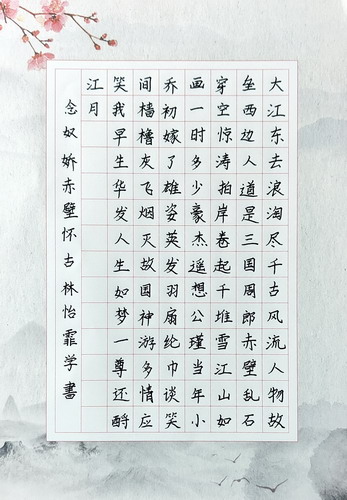 大江东去浪淘尽千古风流人物故
垒西边人道是三国周郎赤壁乱石
穿空惊涛拍岸卷起千堆雪江山如
画一时多少豪杰遥想公瑾当年小
乔初嫁了雄姿英发羽扇纶巾谈笑
间樯橹灰飞烟灭故国神游多情应
笑我早生华发人生如梦一尊还酹
江月
念奴娇赤壁怀古林怡霏学書